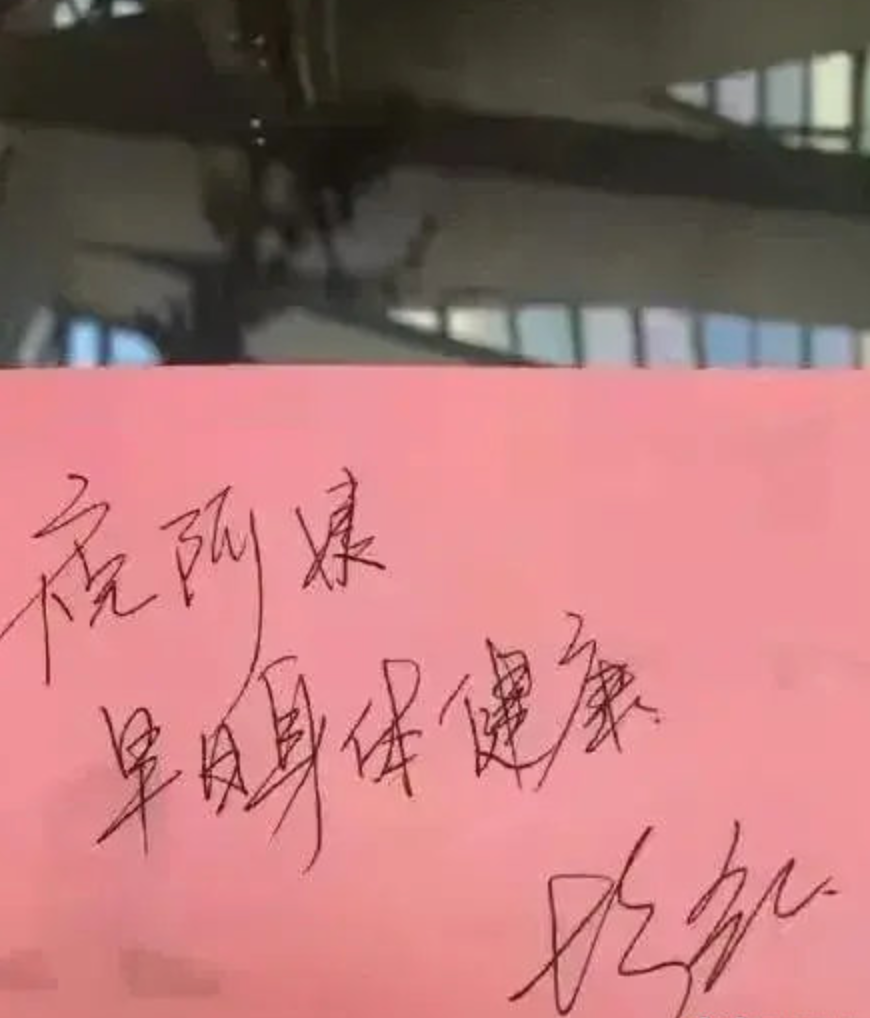 祝阿姨
早日身体健康